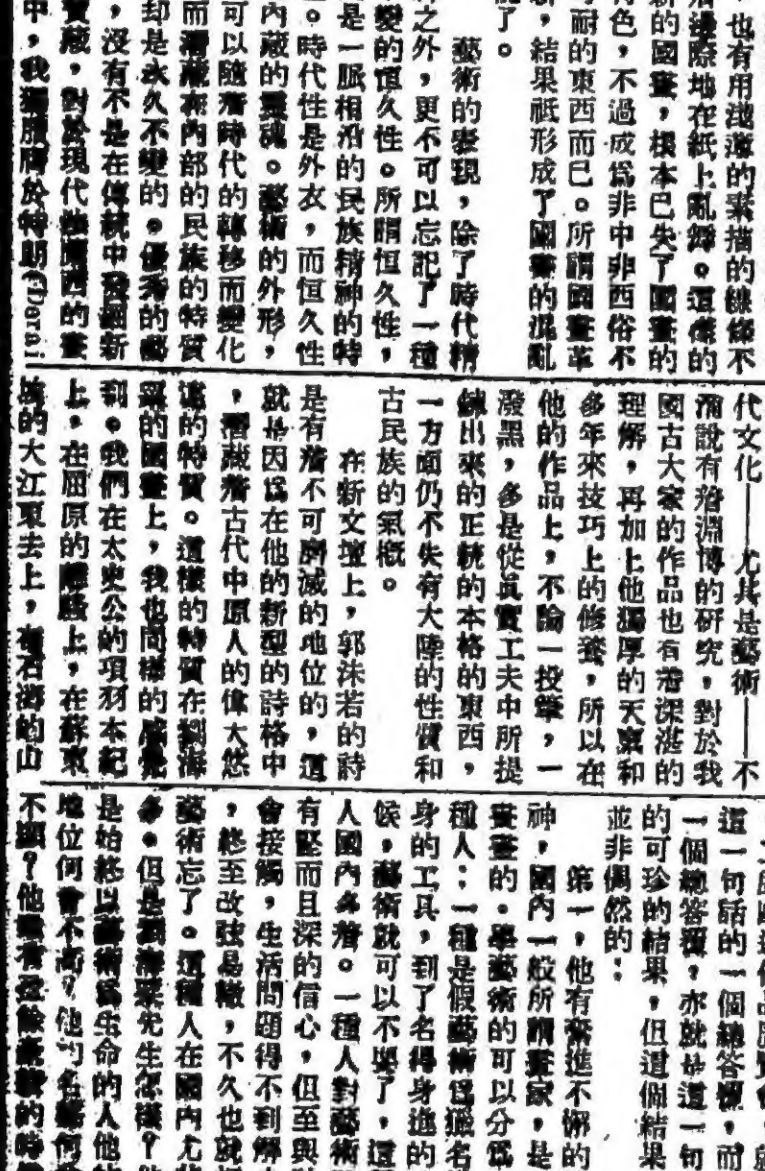 也有用淺薄的素描的線條不
落邊際地在紙上亂舞。這樣的
新的國畫,根本已失了國畫的
特色,不過成爲非中非西俗不
可耐的東西而已。所謂國畫革
新,結果祇形成了國畫的混亂
了。
藝術的表現,除了時代精
之外,更不可以忘記了一種
變的恒久性。所謂恒久性,
是一脈相沿的民族精神的特
。時代性是外衣,而恒久性
內藏的靈魂。藝術的外形,
可以隨着時代的轉移而變化
而潛藏在內部的民族的特質
却是永久不變的。優秀的藝
,沒有不是在傳統中發掘新
寶藏,對於現代法蘭西的畫
中,我獨膺於特朗(Derai
代文化——尤其是藝術——不
消說有着淵博的研究,對於我
國古大家的作品也有着深湛的
理解,再加上他獨厚的天禀和
多年來技巧上的修養,所以在
他的作品上,不論一投筆,一
潑黑,多是從眞實工夫中所提
鍊出來的正統的本格的東西,
一方面仍不失有大陸的性質和
古民族的氣槪。
在新文壇上,郭沫若的詩
是有着不可磨滅的地位的,這
就是因爲在他的新型的詩格中
,潛藏着古代中原人的偉大悠
遠的特質。這樣的特質在劉海
粟的國畫上,我也同樣的感覺
到。我們在太史公的項羽本紀
上,在屈原的離騷上,在蘇東
坡的大江東去上,在石濤的山
這一句話的一個總答覆,而
一個總答覆,亦就是這一句
的可珍的結果,但這個結果
並非偶然的:
第一,他有奮進不懈的
神,國內一般所謂畫家,是
畫畫的。學藝術的可以分爲
種人:一種是假藝術爲獵名
身的工具,到了名得身進的
候,藝術就可以不要了,這
人國內多着。一種人對藝術
有堅而且深的信心,但至與
會接觸,生活問題得不到解
,終至改弦易轍,不久也就把
藝術忘了。這種人在國內尤
多。但是劉海粟先生怎樣?
是始終以藝術爲生命的人他的
地位何嘗不高?他的名譽何
不顯?他